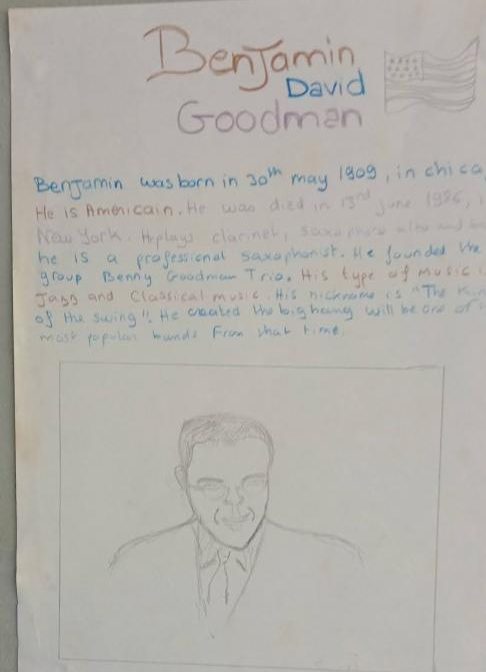 Benjamin
David
Goodman
Benjamin was born in 30th may 1909, in chica
He is Américain. He was died in 13rd june 1986, i
New York. He plays clarinet, saxophone alto and
he is a professional saxophonist. He founded the
group Benny Goodman Trio. His type of music i
Jazz and Classical music. His nickname is "The Kin
of the swing". He created the big will be one of
most popular bands from that time.